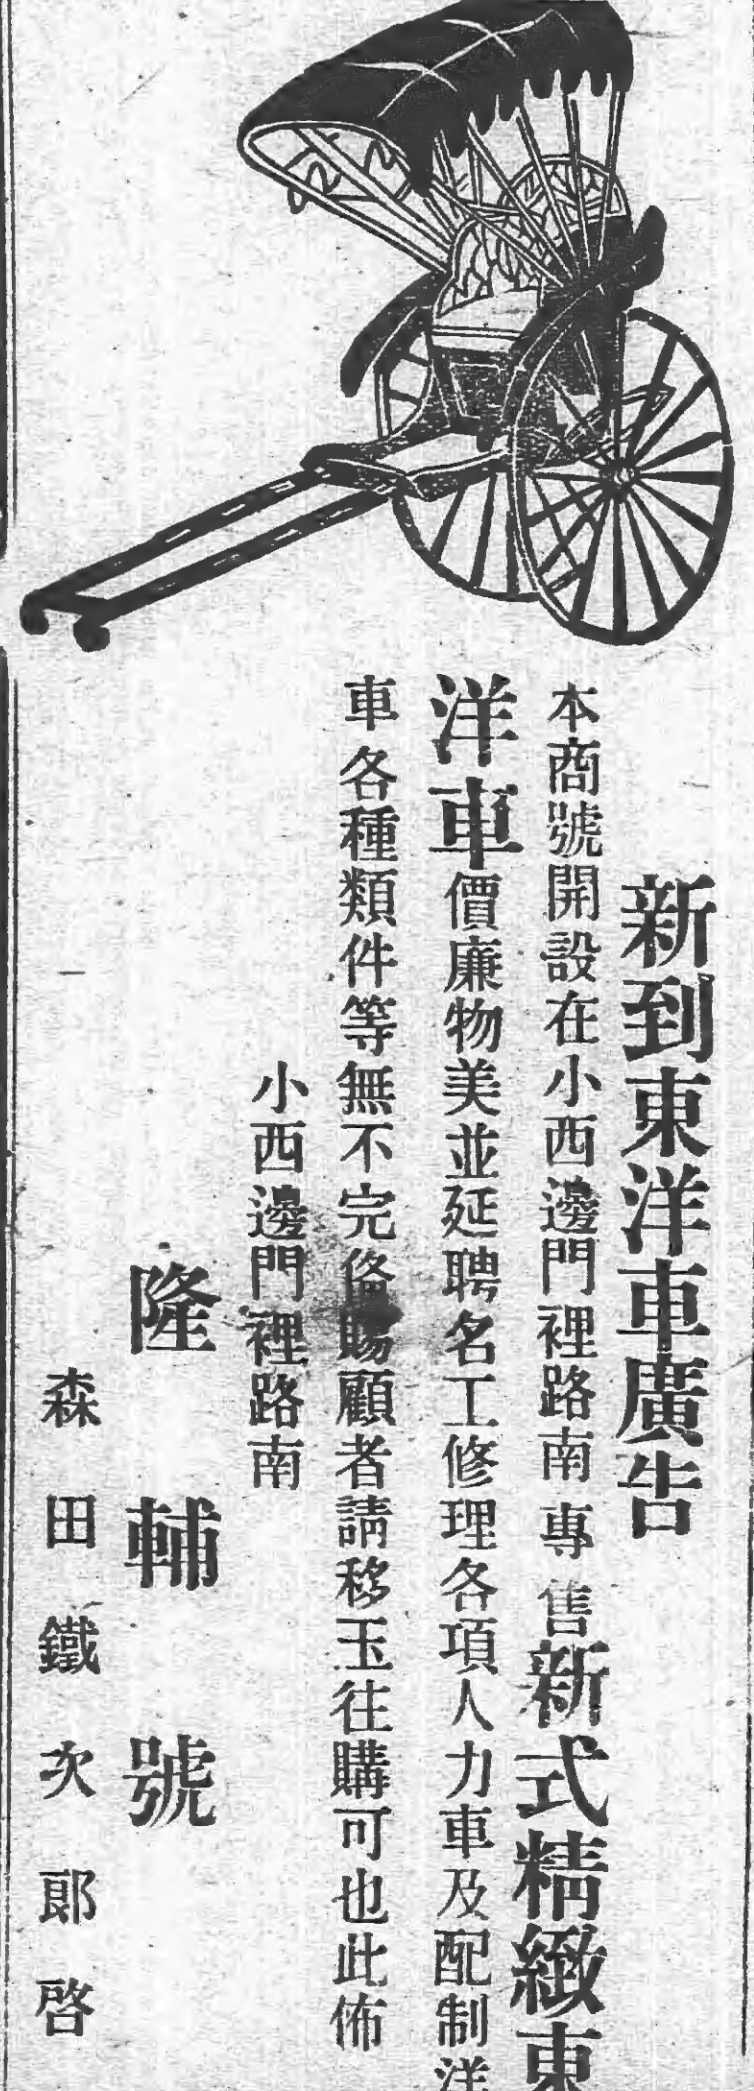 新到東洋車廣告
本商號開設在小西邊門裡路南專售新式精緻東
洋車價廉物美並延聘名工修理各項人力車及配制洋
車各種類件等無不完俻賜顧者請移玉往購可也此佈
小西邊門裡路南
隆輔號
森田鐵次郎啓